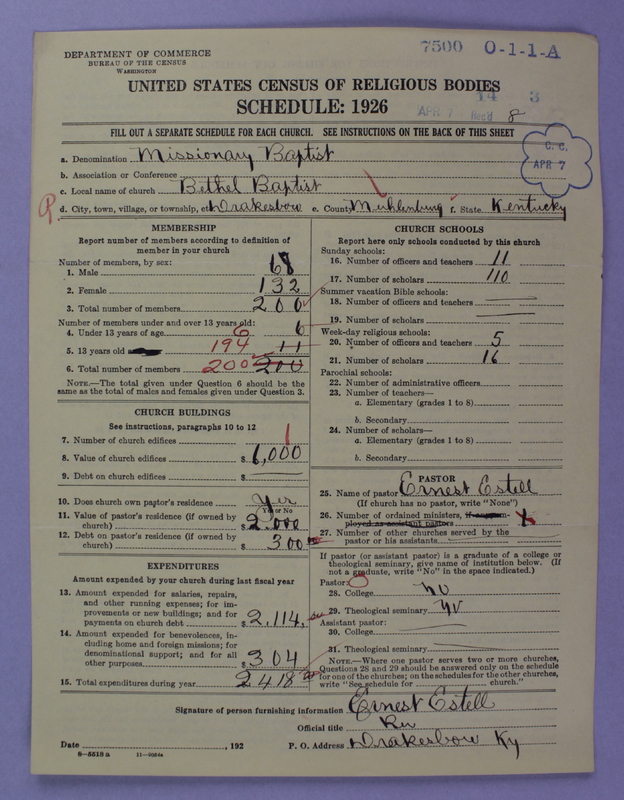 7500 O-1-1-A
DEPARTMENT OF COMMERCE
BUREAU OF THE CENSUS
WASHINGTON
UNITED STATES CENSUS OF RELIGIOUS BODIES
SCHEDULE: 1926
14 3
APR 7 Rec'd 8
FILL OUT A SEPARATE SCHEDULE FOR EACH CHURCH. SEE INSTRUCTIONS ON THE BACK OF THIS SHEET
C. C.
APR 7
a. Denomination Missionary Baptist
b. Association or Conference
c. Local name of church Bethel Baptist
d. City, town, village, or township, etc. Drakesboro e. County Muhlenburg f. State Kentucky
MEMBERSHIP
Report number of members according to definition of
member in your church
Number of members, by sex:
1. Male 68
2. Female 132
3. Total number of members 200
Number of members under and over 13 years old:
4. Under 13 years of age 6 6
5. 13 years old 194 11
6. Total number of members 200 200
NOTE.—The total given under Question 6 should be
same as the total of males and females given under Question 3.
CHURCH BUILDINGS
See instructions, paragraphs 10 to 12
7. Number of church edifices 1
8. Value of church edifices $ 6,000
9. Debt on church edifices $
10. Does church own pastor's residence Yes
Yes or No
11. Value of pastor's residence (if owned by
church) $ 2.000
12. Debt on pastor's residence (if owned by
church) $ 300
EXPENDITURES
Amount expended by your church during last fiscal year
13. Amount expended for salaries, repairs,
and other running expenses; for im-
provements or new buildings; and for
payments on church debt $ 2,114,
14. Amount expended for benevolences, in-
cluding home and foreign missions; for
denominational support; and for all
other purposes $ 304
15. Total expenditures during year 2418
CHURCH SCHOOLS
Report here only schools conducted by this church
Sunday schools:
16. Number of officers and teachers 11
17. Number of scholars 110
Summer vacation Bible schools:
18. Number of officers and teachers
19. Number of scholars
Week-day religious schools:
20. Number of officers and teachers 5
21. Number of scholars 16
Parochial schools:
22. Number of administrative officers
23. Number of teachers—
a. Elementary (grades 1 to 8)
b. Secondary
24. Number of scholars—
a. Elementary (grades 1 to 8)
b. Secondary
PASTOR
25. Name of pastor Ernest Estell
(If church has no pastor, write "None")
26. Number of ordained ministers, if em-
ployed as assistant pastors
27. Number of other churches served by the
pastor or his assistants
If pastor (or assistant pastor) is a graduate of a college or
theological seminary, give name of institution below. (If
not a graduate, write "No" in the space indicated.)
Pastor:
28. College No
29. Theological seminary No
Assistant pastor:
30. College
31. Theological seminary
NOTE.—Where one pastor serves two or more churches,
Questions 28 and 29 should be answered only on the schedule
for one of the churches; on the schedules for the other churches,
write "See schedule for church."
Signature of person furnishing information Ernest Estell
Official title Rev
Date , 192 P. O. Address Drakesboro Ky
8—5518 a